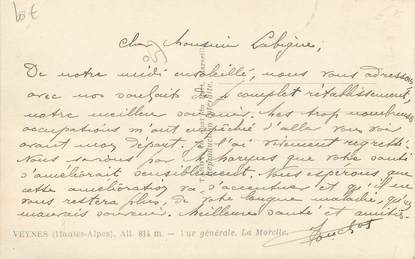 Cher Monsieur Labigne,
De notre midi ensoleillé, nous vous adressons
avec nos souhaits de complet rétablissement,
notre meilleur souvenir. Mes trop nombreuses
occupations m'ont empêché d'aller vous voir
avant mon départ. J'ai vivement regretté.
Nous savons par que votre santé
s'améliorait sensiblement. Nous espérons que
cette amélioration va s'accentuer et qu'il ne
vous restera plus, de votre longue maladie, qu'un
mauvais souvenir. Meilleure santé et amitiés
VEYNES (Hautes-Alpes). Alt. 814 m. — Vue générale. La Morelle.